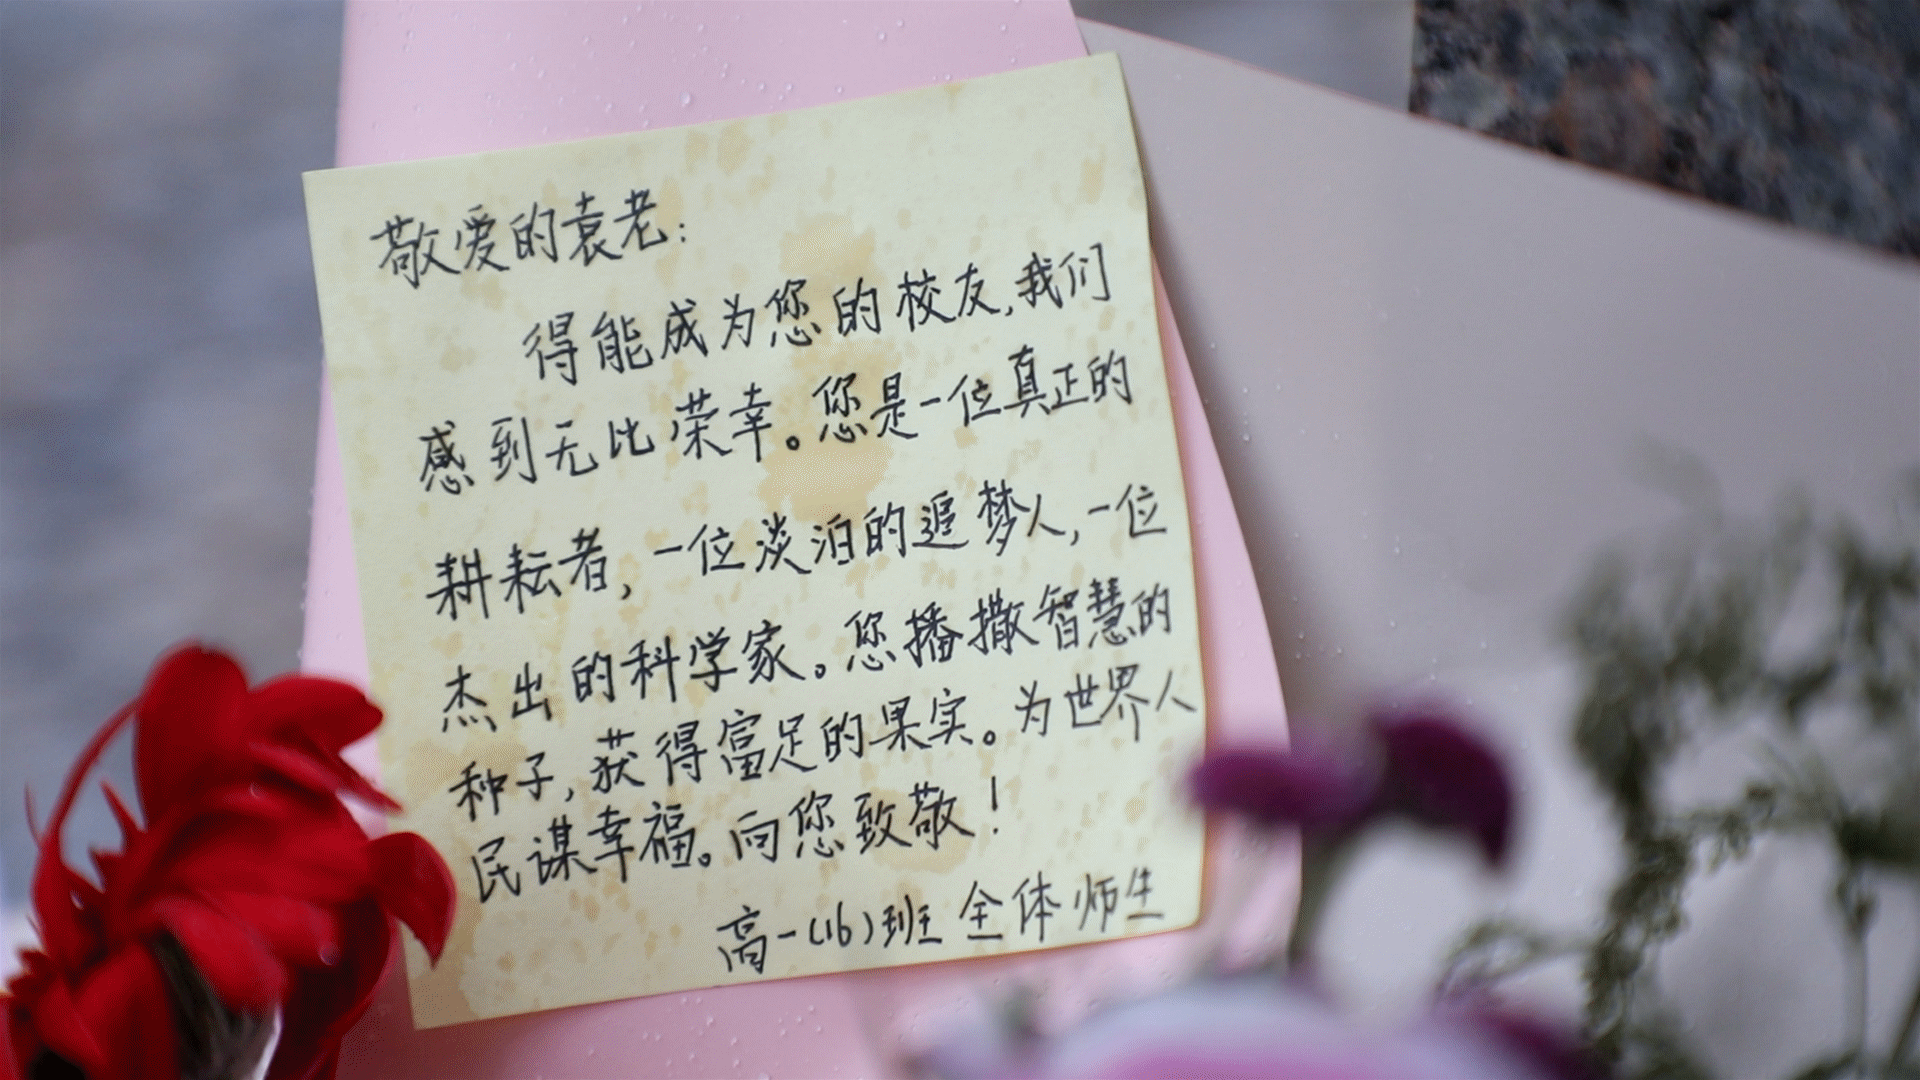 敬爱的袁老：
得能成为您的校友，我们
感到无比荣幸。您是一位真正的
耕耘者，一位淡泊的追梦人，一位
杰出的科学家。您播撒智慧的
种子，获得富足的果实。为世界人
民谋幸福。向您致敬！
高一(16)班全体师生